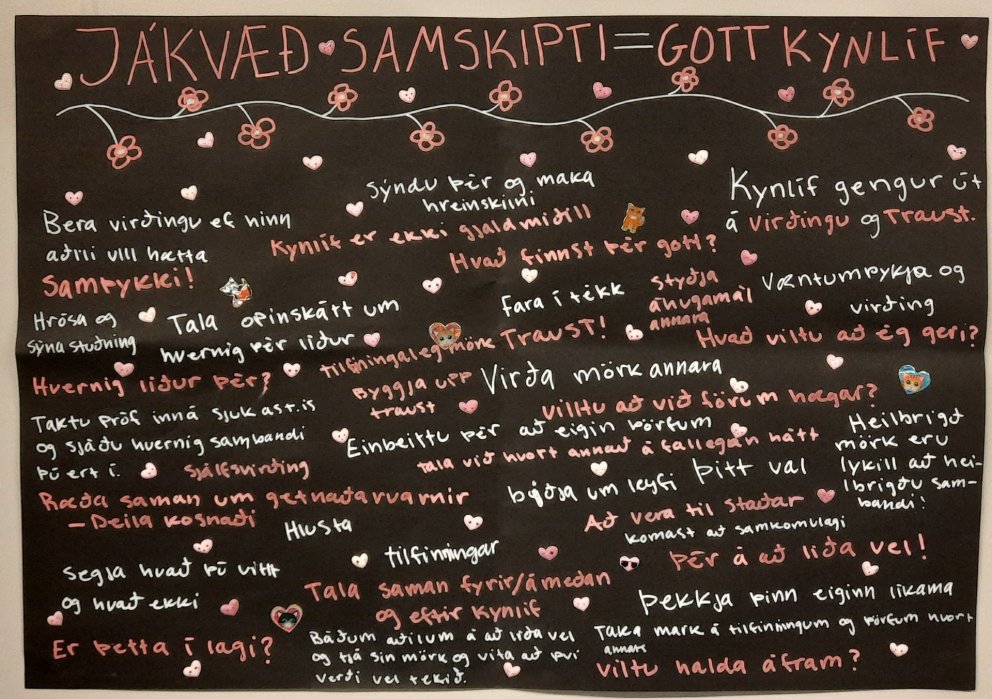 JÁKVÆÐ SAMSKIPTI = GOTT KYNLÍF
Sýndu þér og maka
hreinskilni
Kynlíf gengur út
á virðingu og Traust.
Bera virðingu ef hinn
aðili vill hætta
Kynlíf er ekki gjaldmiðill
Hvað finnst þér gott?
Samþykki!
Hrósa og
sýna stuðning
Tala opinskátt um
hvernig þér líður
Fara í tékk
styðja
áhugamál
annara
Væntumþykja og
virðing
tilfinningaleg mörk
Traust!
Hvað viltu að ég geri?
Hvernig líður þér?
Byggja upp
traust
Virða mörk annara
Villtu að við förum hægar?
Taktu próf inná sjukast.is
og sjáðu hvernig sambandi
þú ert í.
Sjálfsvirðing
Einbeittu þér að eigin þörfum
tala við hvort annað á fallegan hátt
Heilbrigð
mörk eru
lykill að hei-
lbrigðu sam-
bandi!
Ræða saman um getnaðarvarnir
– Deila kosnaði
biðja um leyfi
Þitt val
Að vera til staðar
komast að samkomulagi
Hlusta
tilfinningar
Þér á að líða vel!
Segja hvað þú vilt
og hvað ekki
Tala saman fyrir/á meðan
og eftir kynlíf
Þekkja þinn eiginn líkama
Er þetta í lagi?
Báðum aðilum á að líða vel
og tjá sín mörk og vita að því
verði vel tekið.
Taka mark á tilfinningum og þörfum hvort
annars
Viltu halda áfram?